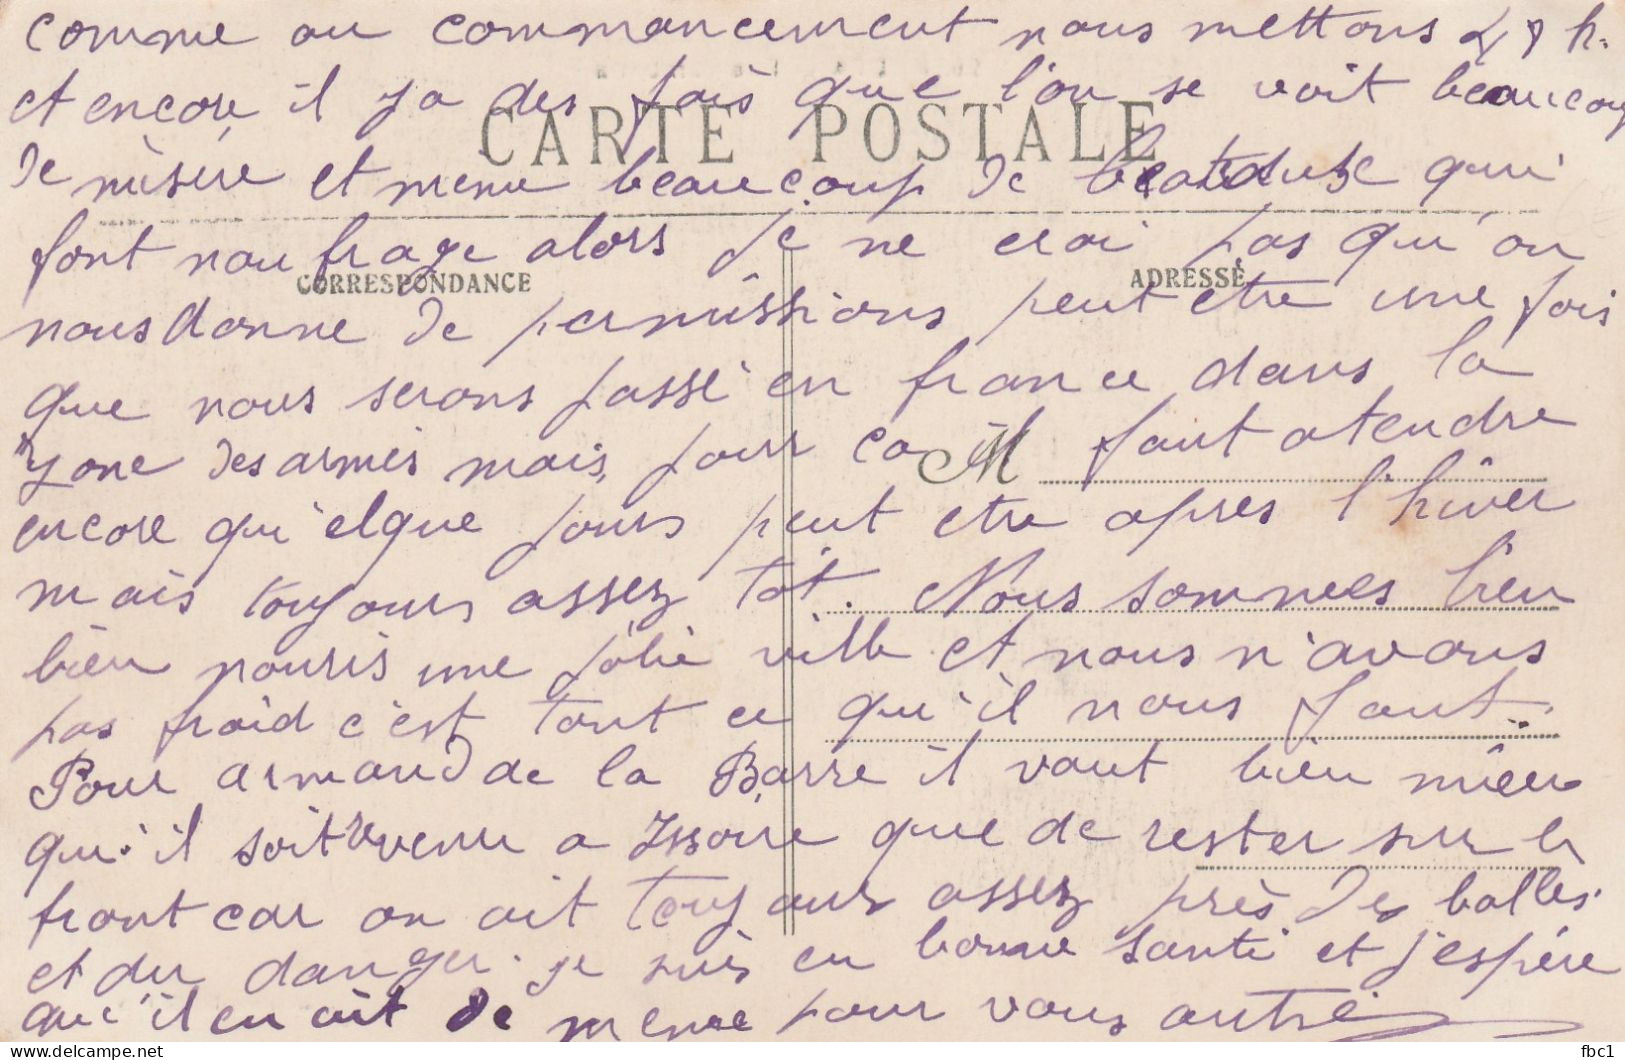 comme au commancement nous mettons 48 h.
et encore il ya des fois que l'on se voit beaucoup
CARTE POSTALE
de misère et meme beaucoup de qui
font naufrage alors je ne croi pas qu'on
CORRESPONDANCE
ADRESSE
nous donne de permissions peut etre une fois
que nous serons passé en france dans la
zone des armés mais, pour ca il faut atendre
M
encore qu'elque jours peut etre apres l'hiver
mais toujours assez tôt. Nous sommes bien
bien nouris une jolie ville et nous n'avons
pas froid c'est tout ce qu'il nous faut.
Pour armand de la Barre il vaut bien mieu
qu'il soit revenu a Issoire que de rester sur le
front car on ait toujours assez près des balles.
et du danger. je suis en bonne santé et j'espére
qu'il en ait de meme pour vous autre
fbc1
www.delcampe.net